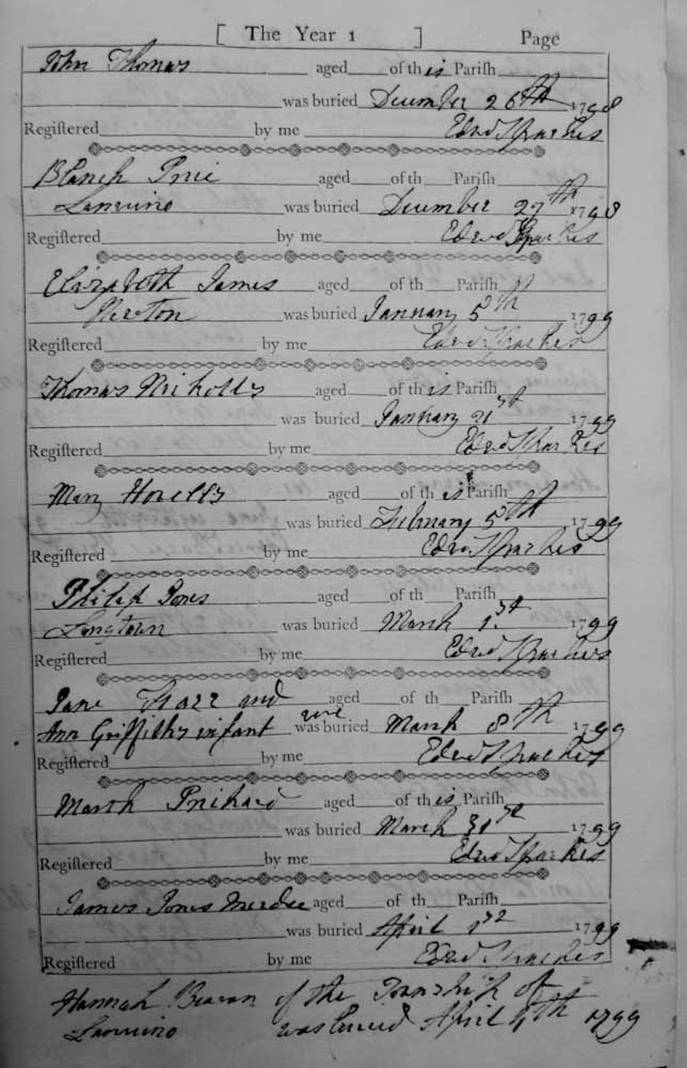 [ The Year 1 ] Page
John Thomas aged of this Parish
was buried December 26th 1798
Registered by me Edwd Sparkes
Blanch Price aged of th Parish
Lanuino was buried December 27th 1798
Registered by me Edwd Sparkes
Elizabeth James aged of th Parish
was buried January 5th 1799
Registered by me Edwd Sparkes
Thomas Nicholls aged of this Parish
was buried January 21st 1799
Registered by me Edwd Sparkes
Mary Howells aged of this Parish
was buried February 5th 1799
Registered by me Edwd Sparkes
Philip Jones aged of th Parish
Longtown was buried March 1st 1799
Registered by me Edwd Sparkes
Jane and aged of th Parish
Ann Griffiths infant were buried March 8th 1799
Registered by me Edwd Sparkes
Prichard aged of this Parish
was buried March 31st 1799
Registered by me Edwd Sparkes
James Jones aged of th Parish
was buried April 1st 1799
Registered by me Edwd Sparkes
Hannah Beavan of the Township of
Lanuino was buried April 4th 1799